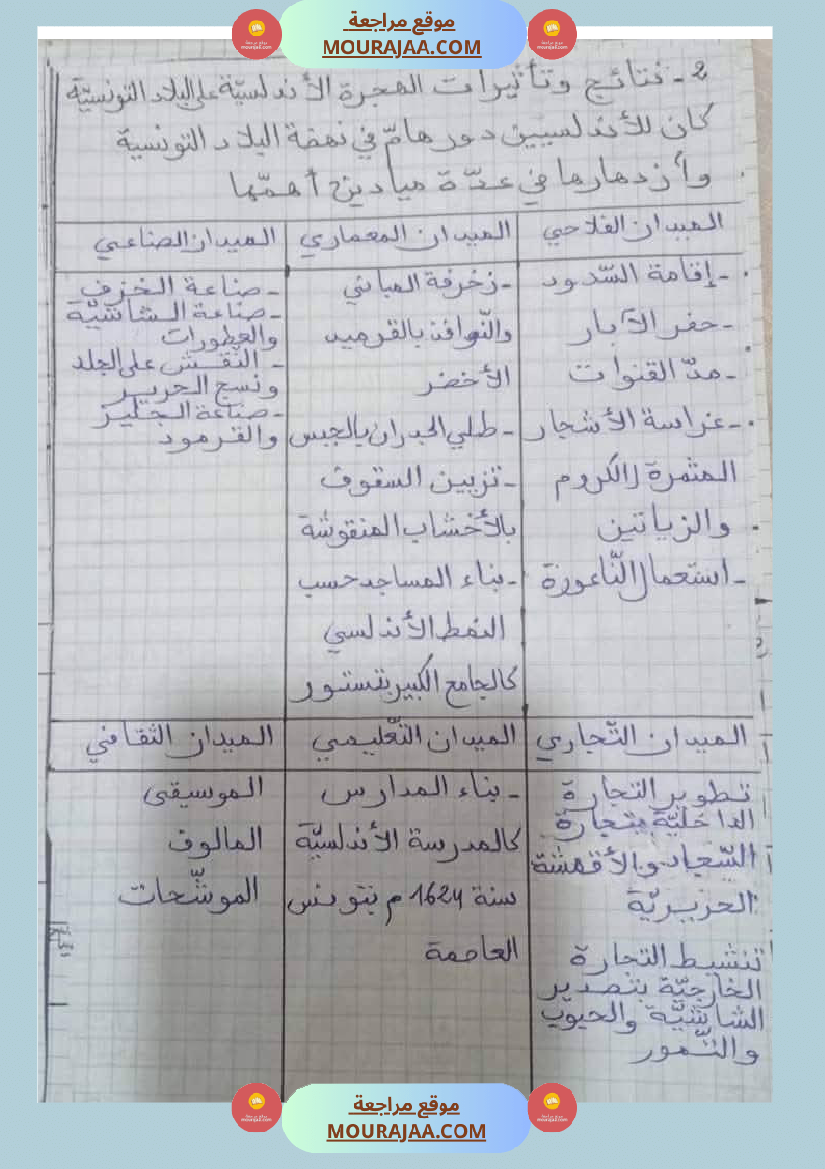 موقع مراجعة
MOURAJAA.COM
2 - نتائج وتأثيرات الهجرة الأندلسيّة على البلاد التونسيّة
كان للأندلسيين دور هامّ في نهضة البلاد التونسية
وأزدهارها في عدّة ميادين أهمّها
الميدان الفلاحي
- إقامة السّدود
- حفر الآبار
- مدّ القنوات
- غراسة الأشجار
المثمرة (الكروم
والزياتين
- استعمال النّاعورة
الميدان المعماري
- زخرفة المباني
والنّوافذ بالقرميد
الأخضر
- طلي الجدران بالجبس
- تزيين السقوف
بالأخشاب المنقوشة
- بناء المساجد حسب
النمط الأندلسي
كالجامع الكبير بتستور
الميدان الصناعي
- صناعة الخزف
- صناعة الشاشيّة
والعطورات
- النقش على الجلد
ونسج الحرير
- صناعة الجليز
والقرمود
الميدان التّجاري
تطوير التجارة
الداخليّة بتجارة
السّجاد والأقمشة
الحريريّة
تنشيط التجارة
الخارجيّة بتصدير
الشاشيّة والحبوب
والتّمور
الميدان التّعليمي
- بناء المدارس
كالمدرسة الأندلسيّة
سنة 1624 م بتونس
العاصمة
الميدان الثقافي
الموسيقى
المالوف
الموشّحات
موقع مراجعة
MOURAJAA.COM